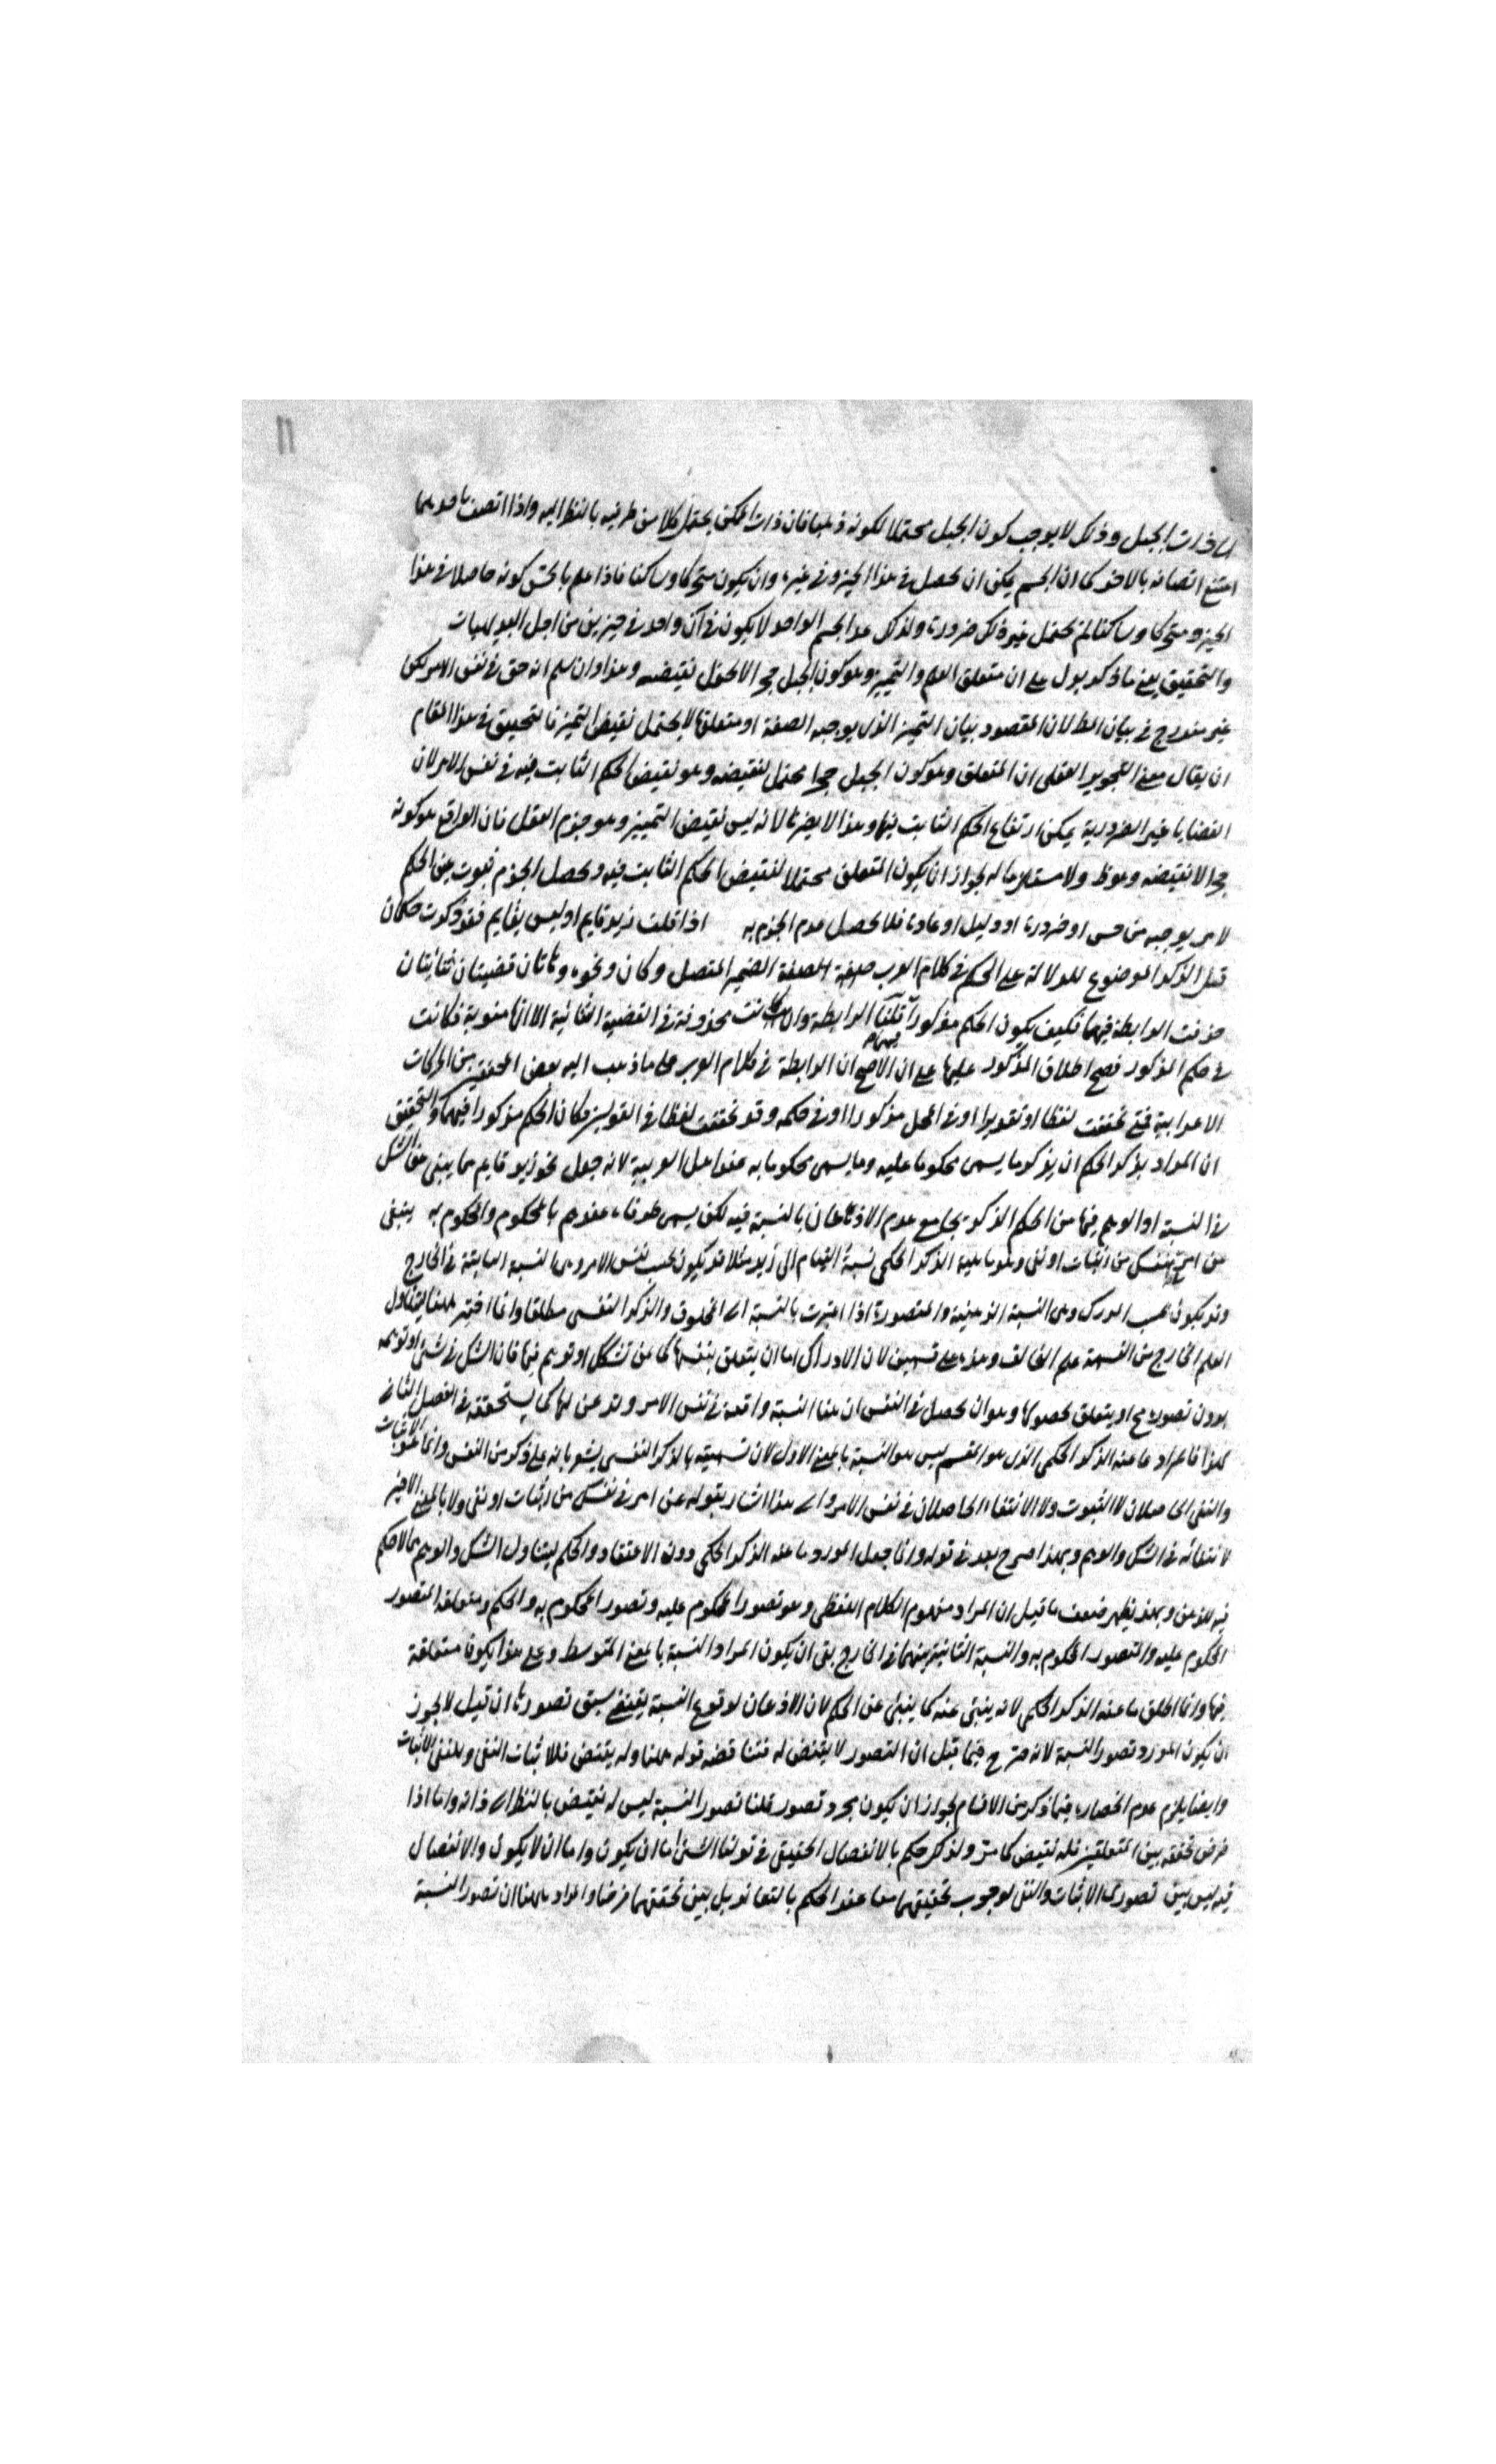 11
الى ذات الجبل وذلك لا يوجب كون الجبل محتملا لكونه ذهبا فان ذات الممكن يحتمل كلا من طرفيه بالنظر اليه واذا اتصف باحدهما
امتنع اتصافه بالاخر كما ان الجسم يمكن ان يحصل في هذا الحيز وفي غيره وان يكون متحركا وساكنا فاذا علم بالحس كونه حاصلا في هذا
الحيز ومتحركا وساكنا لم يحتمل غير ذلك ضرورة ولذلك عد الجسم الواحد لا يكون في آن واحد في حيزين من اجل البديهيات
والتحقيق يعني ما ذكر يدل على ان متعلق العلم والتمييز وهو كون الجبل حجرا لا يحتمل نقيضه وهذا وان سلم انه حق في نفس الامر لكن
غير مندرج في بيان المط لان المقصود بيان التمييز الذي يوجبه الصفة او متعلقها لا يحتمل نقيض التمييز فالتحقيق في هذا المقام
ان يقال معنى التجويز العقلي ان المتعلق وهو كون الجبل حجرا محتمل لنقيضه وهو نقيض الحكم الثابت فيه في نفس الامر لان
القضايا غير الضرورية يمكن ارتفاع الحكم الثابت فيها وهذا لا يضرنا لانه ليس نقيض التمييز وهو جزم العقل فان الواقع هو كونه
حجرا لا نقيضه وهو ظ ولا مستلزما له لجواز ان يكون المتعلق محتملا لنقيض الحكم الثابت فيه ويحصل الجزم بثبوت عين الحكم
لامر يوجبه من حس او ضرورة او دليل او عادة فلا يحصل عدم الجزم به اذا قلت زيد قايم او ليس بقايم فقد ذكرت حكما فان
قيل الذكر الموضوع للدلالة على الحكم في كلام العرب صيغة الصفة الضمير المتصل وكان ونحوه وهاتان قضيتان ثنائيتان
حذفت الرابطة فيهما فكيف يكون الحكم مذكورا قلنا الرابطة وان كانت محذوفة في القضية الثنائية الا انها منوية فكانت
في حكم المذكور فصح اطلاق المذكور عليها على ان الاصح ان الرابطة في كلام العرب على ما ذهب اليه بعض المحققين الحركات
الاعرابية فمتى تحققت لفظا او تقديرا او في المحل مذكورا او في حكمه وقد تحققت لفظا في القولين فكان الحكم مذكورا فيهما والتحقيق
ان المراد بذكر الحكم ان يذكر ما يسمى محكوما عليه وما يسمى محكوما به عند اهل العربية لانه جعل نحو زيد قايم مما ينبئ عن الشك
في النسبة او الوهم فيها من الحكم الذكري بجامع عدم الاذعان بالنسبة فيه لكن يسمى طرفاه عندهم بالمحكوم والمحكوم به ينبئ
عن امر في نفسك من اثبات او نفي وهو ما عليه الذكر الحكمي نسبة القيام الى زيد مثلا قد يكون بحسب نفس الامر وهي النسبة السابقة في الخارج
وقد يكون بحسب المدرك وهي النسبة الذهنية والمتصورة اذا اعتبرت بالنسبة الى المخلوق والذكر النفسي مطلقا وانما اختير ههنا ليتناول
العلم الخارج من القسمة علم الخالق وهذه على قسمين لان الادراك اما ان يتعلق بنفسها كما عن تشكك او توهم فيها فان الشك في شيء او توهمه
بدون تصوره مح او يتعلق بحصولها وهو ان يحصل في النفس ان هذا النسبة واقعة في نفس الامر وتذعن لها كما يستحققه في الفصل الثاني
هذا فالمراد ما عنه الذكر الحكمي الذي هو المقسم ليس هو النسبة بالمعنى الاول لان تسميته بالذكر النفسي يشعر بانه على ذكر من النفس وانما هو الاثبات
والنفي الحاصلان لا الثبوت ولا الانتفاء الحاصلان في نفس الامر والى هذا اشار بقوله عن امر في نفسك من اثبات او نفي ولا بالمعنى الاخير
لانتفائه في الشك والوهم وبهذا صرح بعد في قوله وانما جعل المورد ما عنه الذكر الحكمي دون الاعتقاد والحكم ليتناول الشك والوهم مما لا حكم
فيه للذهن وبهذا يظهر ضعف ما قيل ان المراد مفهوم الكلام اللفظي وهو تصور المحكوم عليه وتصور المحكوم به والحكم ومتعلقه المتصور
المحكوم عليه والمتصور المحكوم به والنسبة الثانية بينهما في الخارج بقى ان يكون المراد النسبة بالمعنى المتوسط وعلى هذا يكون متعلقة
فيها وانما اطلق ما عنه الذكر الحكمي لانه ينبئ عنه كما ينبئ عن الحكم لان الاذعان لوقوع النسبة يقتضي سبق تصورها ان قيل لا يجوز
ان يكون المورد تصور النسبة لانه صرح فيما قبل ان التصور لا نقيض له فتناقضه قوله ههنا وله نقيض فللاثبات النفي وللنفي الاثبات
وايضا يلزم عدم انحصاره فيما ذكر من الاقسام لجواز ان يكون مجرد تصور قلنا تصور النسبة ليس له نقيض بالنظر الى ذاته واما اذا
فرض تحققه بين المتعلقين فله نقيض كما مر ولذلك حكم بالانفصال الحقيقي في قولنا الشيء اما ان يكون واما ان لا يكون والانفصال
فيه ليس بين تصوري الاثبات والنفي لوجوب تحققهما معا عند الحكم بالتعاند بل بين تحققهما فرضا والمراد ههنا ان تصور النسبة